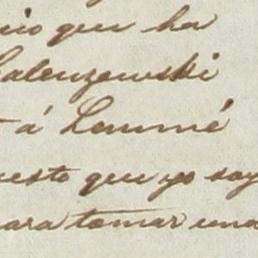 que ha
Calenzewski
á Lommé
uesto que yo soy
para tomar una